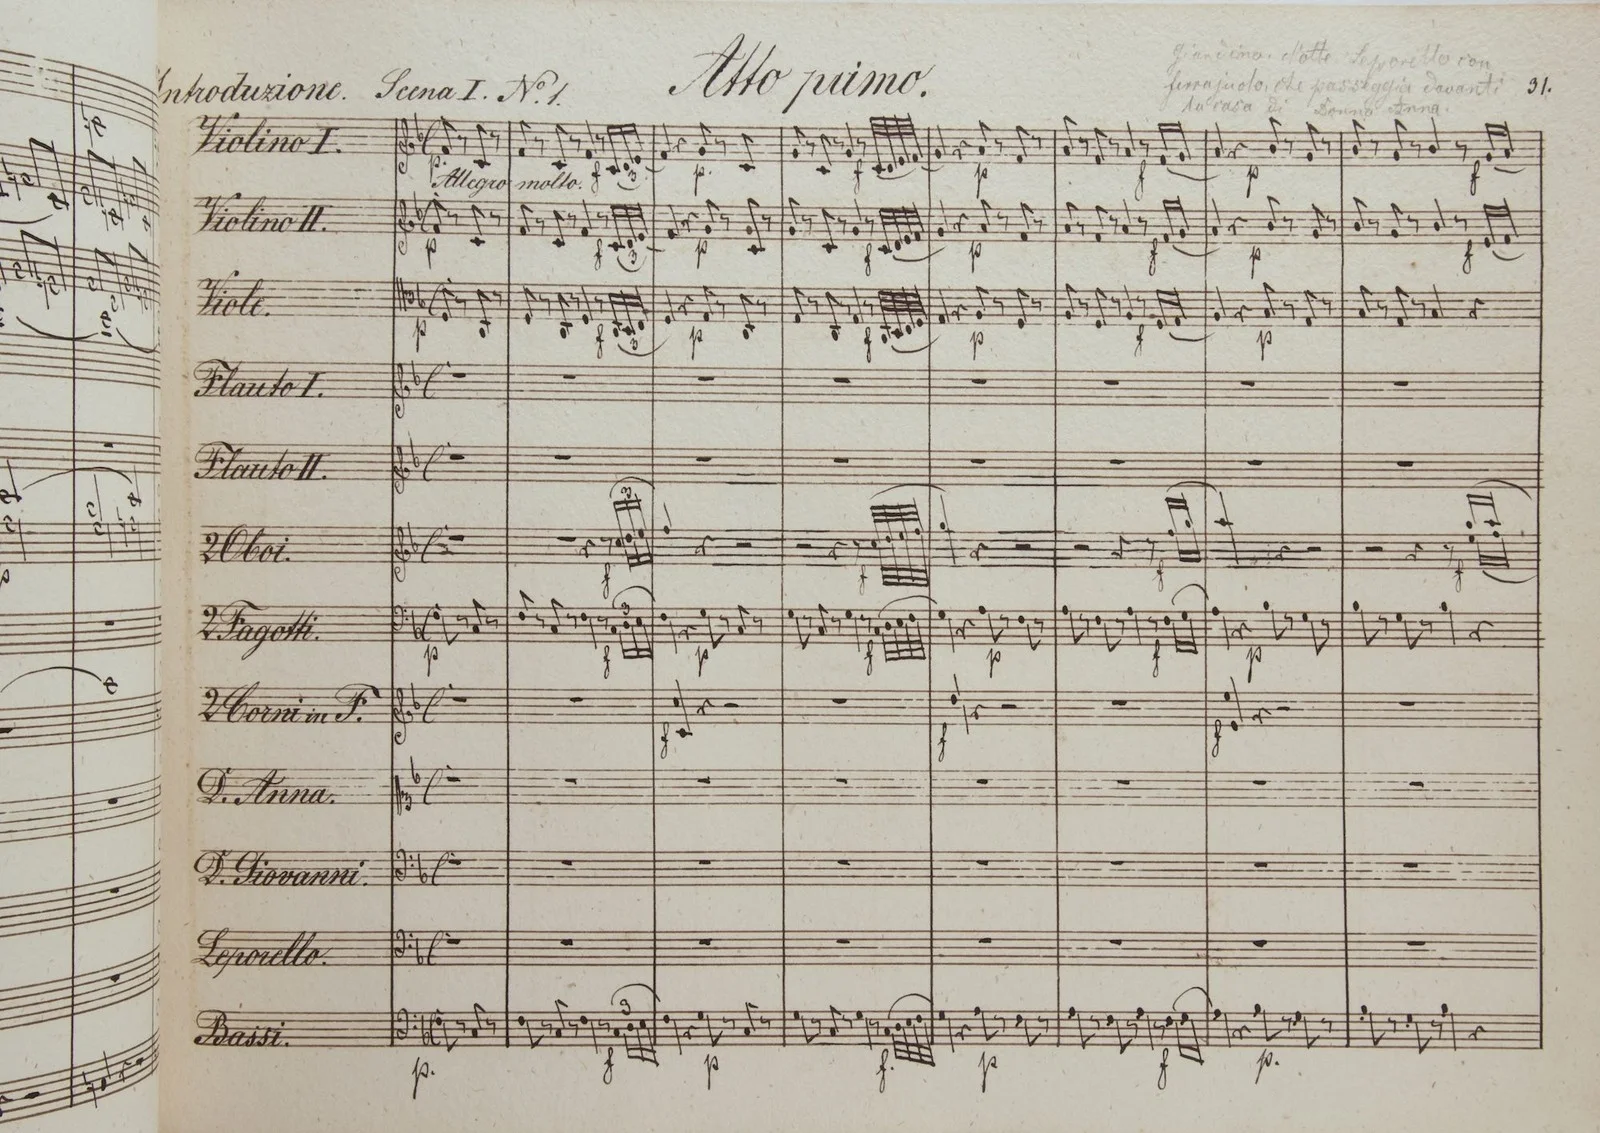 Introduzione. Scena I. No. 1.
Atto primo.
Giardino. Notte. Leporello con
ferrajuolo, che passeggia davanti
la casa di Donna Anna.
31.
Violino I.
p.
Allegro molto.
f
3
p.
f
p
f
p
f
Violino II.
p
f
3
p
f
p
f
p
f
Viole.
p
f
3
p
f
p
f
p
Flauto I.
Flauto II.
2 Oboi.
3
f
f
f
f
2 Fagotti.
p
f
3
p
f
p
f
p
2 Corni in F.
f
f
f
D. Anna.
D. Giovanni.
Leporello.
Bassi.
p.
f
3
p
f.
p
f
p.